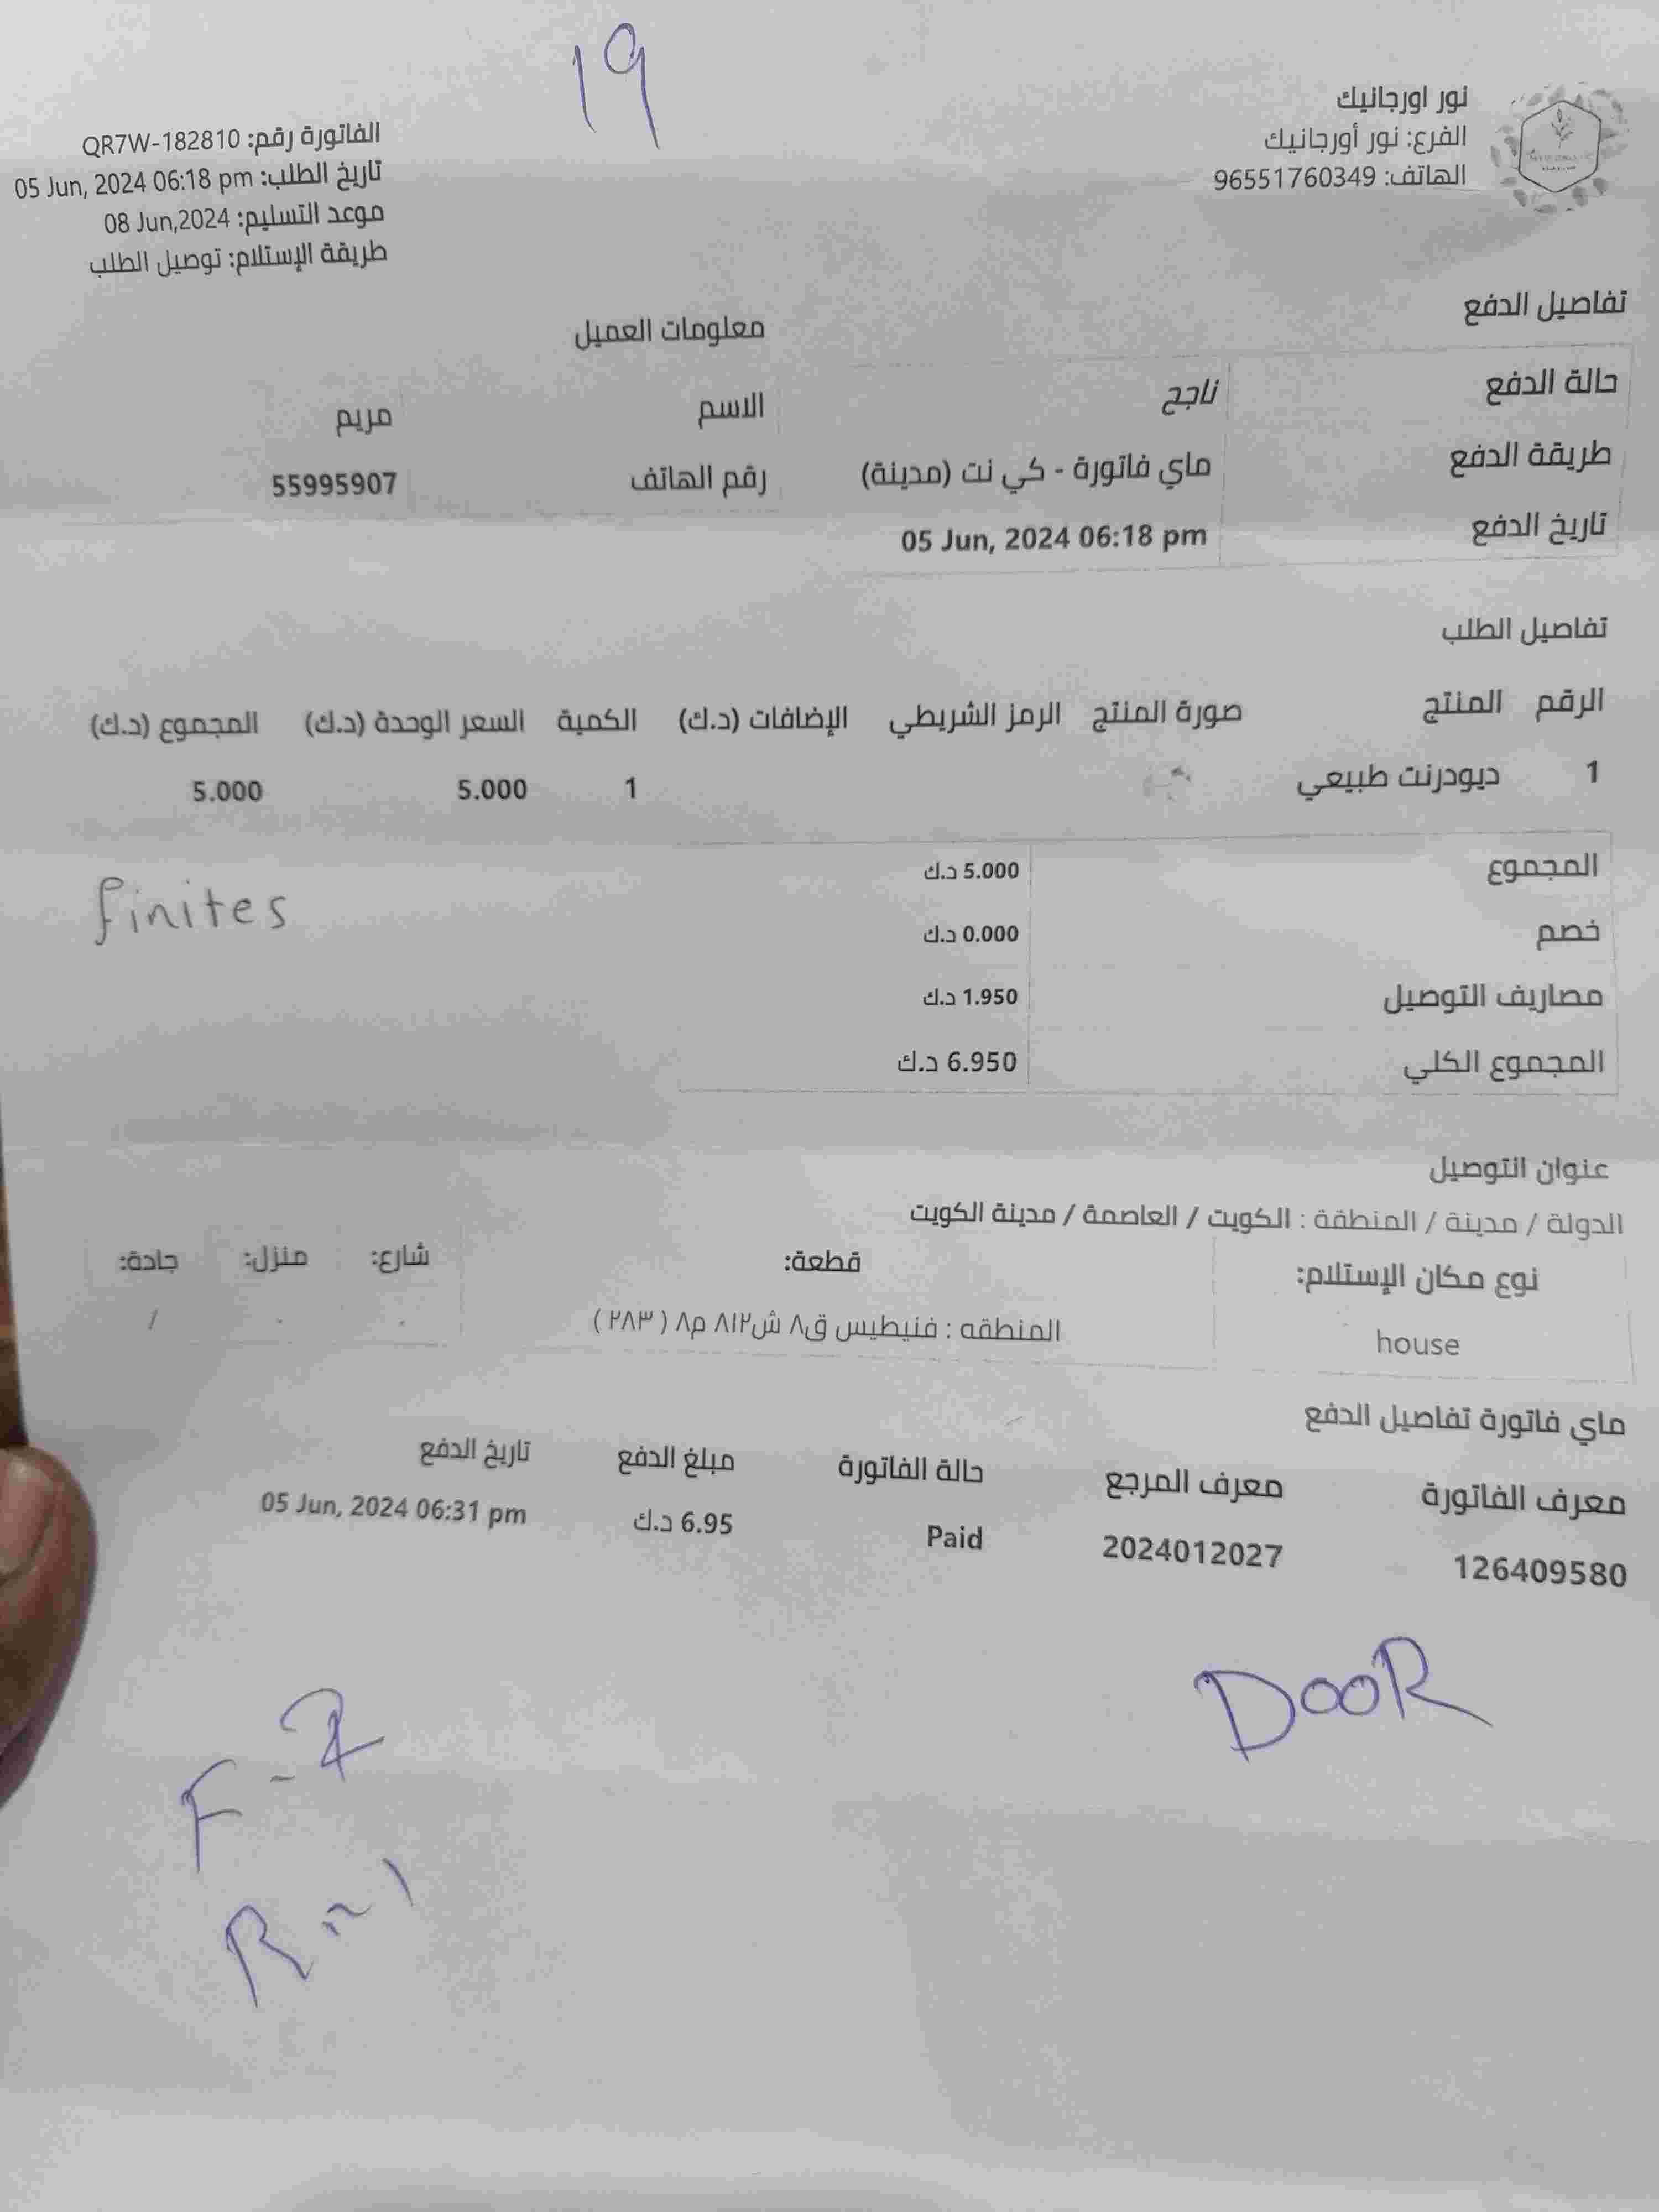 19
نور اورجانيك
الفرع: نور أورجانيك
الهاتف: 96551760349
الفاتورة رقم: QR7W-182810
تاريخ الطلب: 05 Jun, 2024 06:18 pm
موعد التسليم: 08 Jun,2024
طريقة الإستلام: توصيل الطلب
تفاصيل الدفع
حالة الدفع ناجح
طريقة الدفع ماي فاتورة - كي نت (مدينة)
تاريخ الدفع 05 Jun, 2024 06:18 pm
معلومات العميل
الاسم مريم
رقم الهاتف 55995907
تفاصيل الطلب
الرقم المنتج صورة المنتج الرمز الشريطي الإضافات (د.ك) الكمية السعر الوحدة (د.ك) المجموع (د.ك)
1 ديودرنت طبيعي 1 5.000 5.000
المجموع 5.000 د.ك
خصم 0.000 د.ك
مصاريف التوصيل 1.950 د.ك
المجموع الكلي 6.950 د.ك
finites
عنوان التوصيل
الدولة / مدينة / المنطقة : الكويت / العاصمة / مدينة الكويت
نوع مكان الإستلام: قطعة: شارع: منزل: جادة:
house المنطقه : فنيطيس ق٨ ش٨١٢ م٨ ( ٢٨٣ ) . . /
ماي فاتورة تفاصيل الدفع
معرف الفاتورة معرف المرجع حالة الفاتورة مبلغ الدفع تاريخ الدفع
126409580 2024012027 Paid 6.95 د.ك 05 Jun, 2024 06:31 pm
DOOR
F-2
R-1